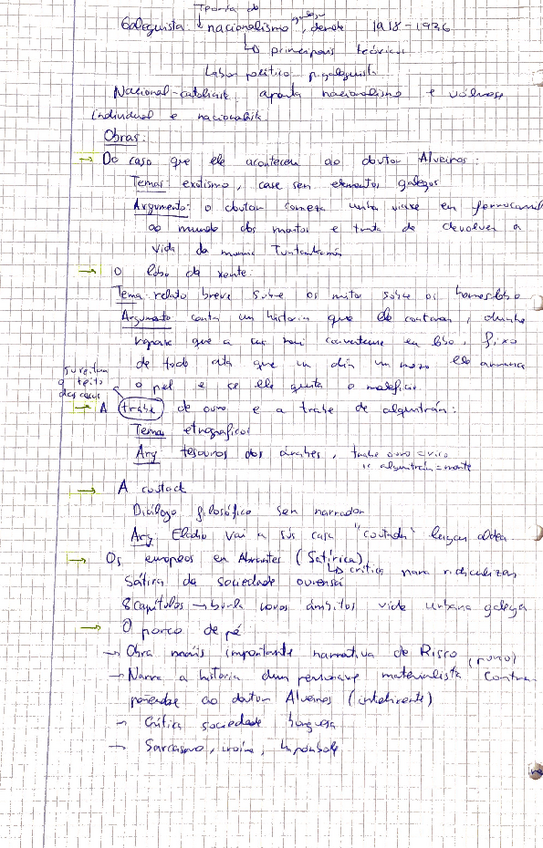 Teoría do
Galeguista: nacionalismo galego, dende 1918-1936
↳ principais teóricos
Labor político p. galeguista
Nacional-catolicista aposta nacionalismo e
individual e nacionalista
Obras:
→ Do caso que lle aconteceu ao doutor Alveiros:
Temas: exotismo, case sen elementos galegos
Argumento: o doutor comeza unha viaxe en ferrocarril
ao mundo dos mortos e trata de devolver a
vida da momia Tuntankamón
→ O lobo da xente:
Tema: relato breve sobre os mitos sobre os homes lobo
Argumento conta un historia que lle contaron, dunha
rapaza que a súa nai converteuse en lobo, fixo
de todo ata que un día un mozo lle arranca
a pel e se lle quita o maleficio
suxeitan
o teito
das casas
→ A trabe de ouro e a trabe de alquitrán:
Temas etnográficos
Arg tesouros dos árabes, trabe ouro =
" alquitrán = morte
→ A coutada
Diálogo filosófico sen narrador
Arg: Eladio vai a súa casa "coutada" lonxe aldea
→ Os europeos en Abrantes (Satírica)
↳ crítica para ridiculizar
Sátira da sociedade ourensá
8 capítulos → burla novos ámbitos vida urbana galega
→ O porco de pé
→ Obra máis importante narrativa de Risco
(porco)
→ Narra a historia dun personaxe materialista contra-
poñendoe ao doutor Alveiros (intelixente)
→ Crítica sociedade burguesa
→ Sarcasmo, ironía, hipérbole